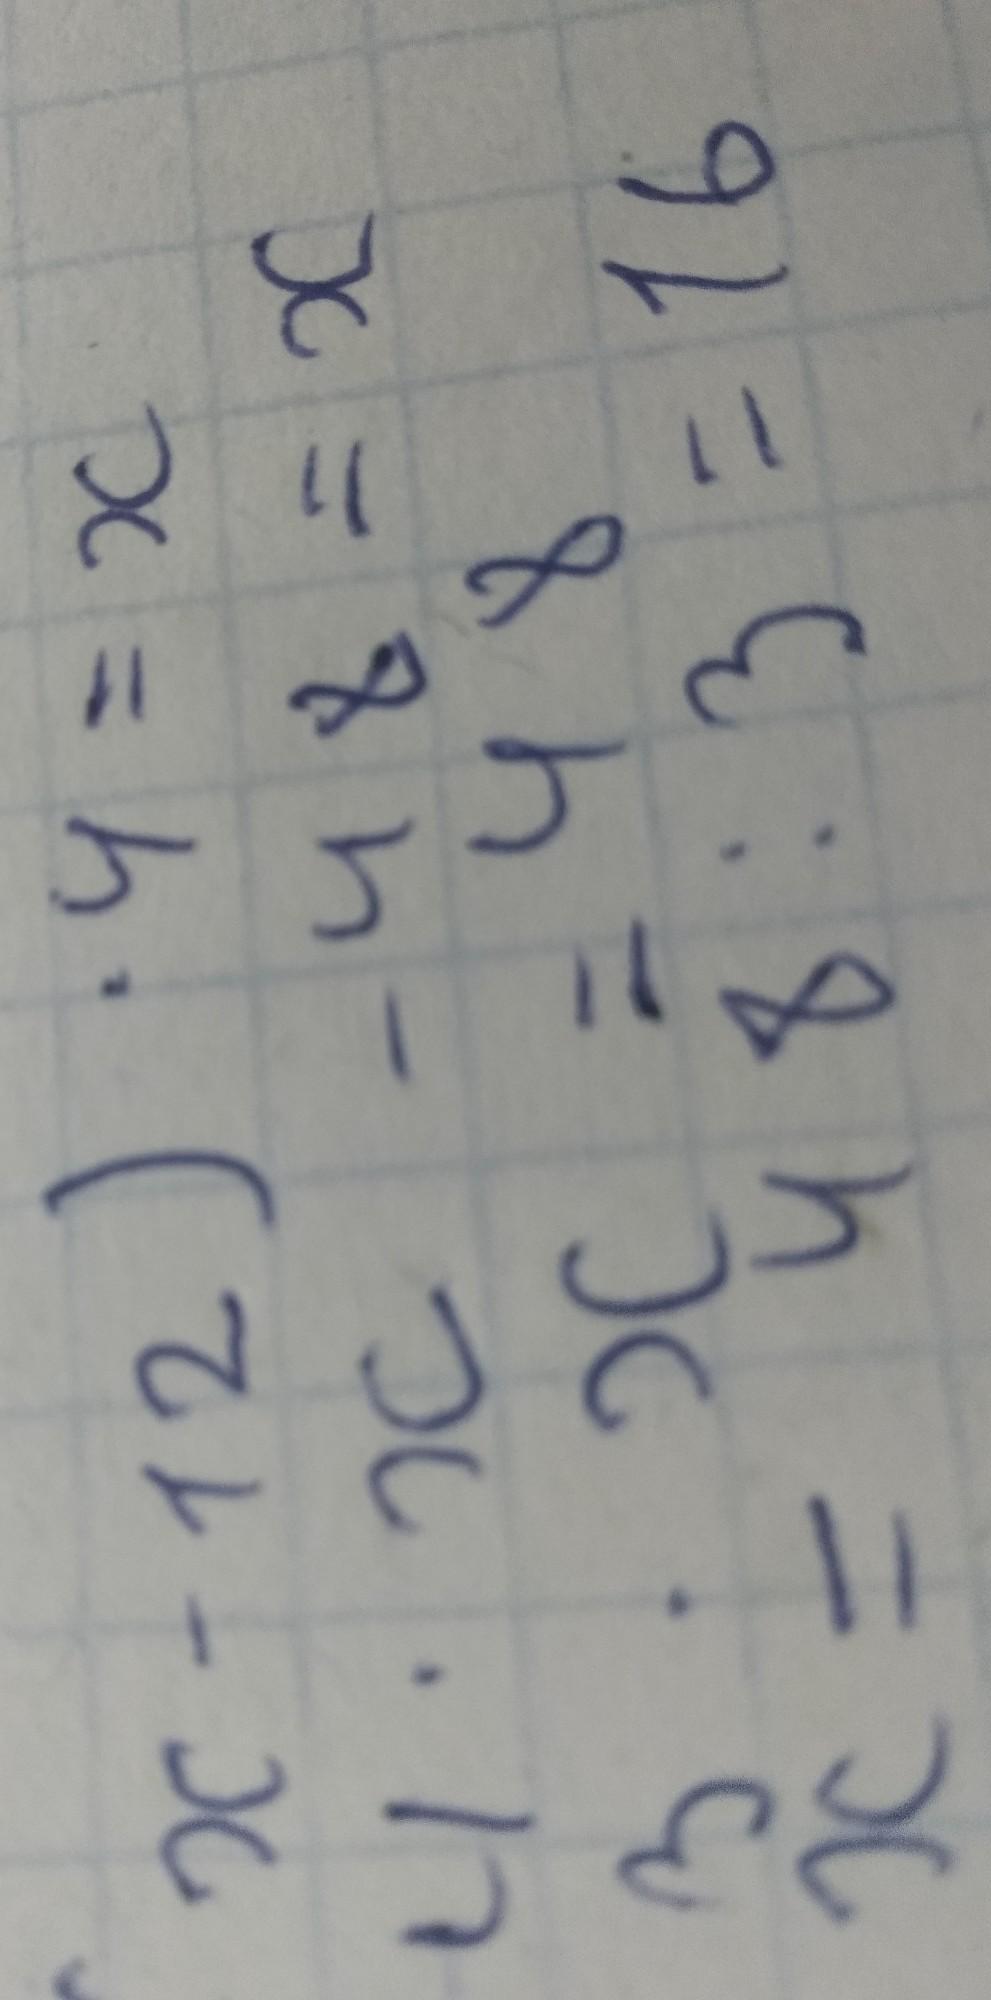 (x - 12) · 4 = x
4 · x - 48 = x
3 · x = 48
x = 48 : 3 = 16